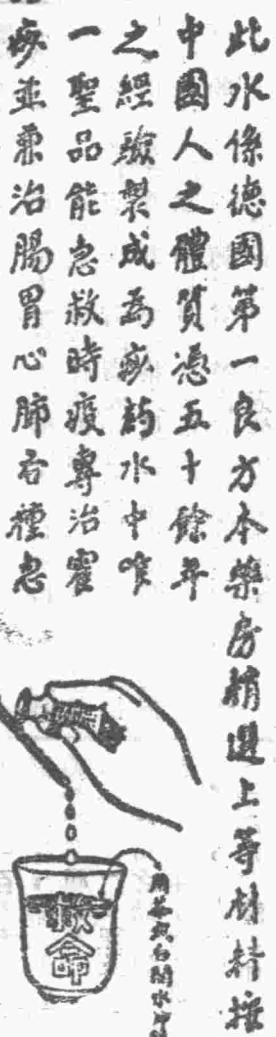 此水係德國第一良方本藥房精選上等材料按
中國人之體質憑五十餘年
之經驗製成為痧葯水中唯
一聖品能急救時疫專治霍
痧並兼治腸胃心肺各種急
救命
用茶或白開水沖